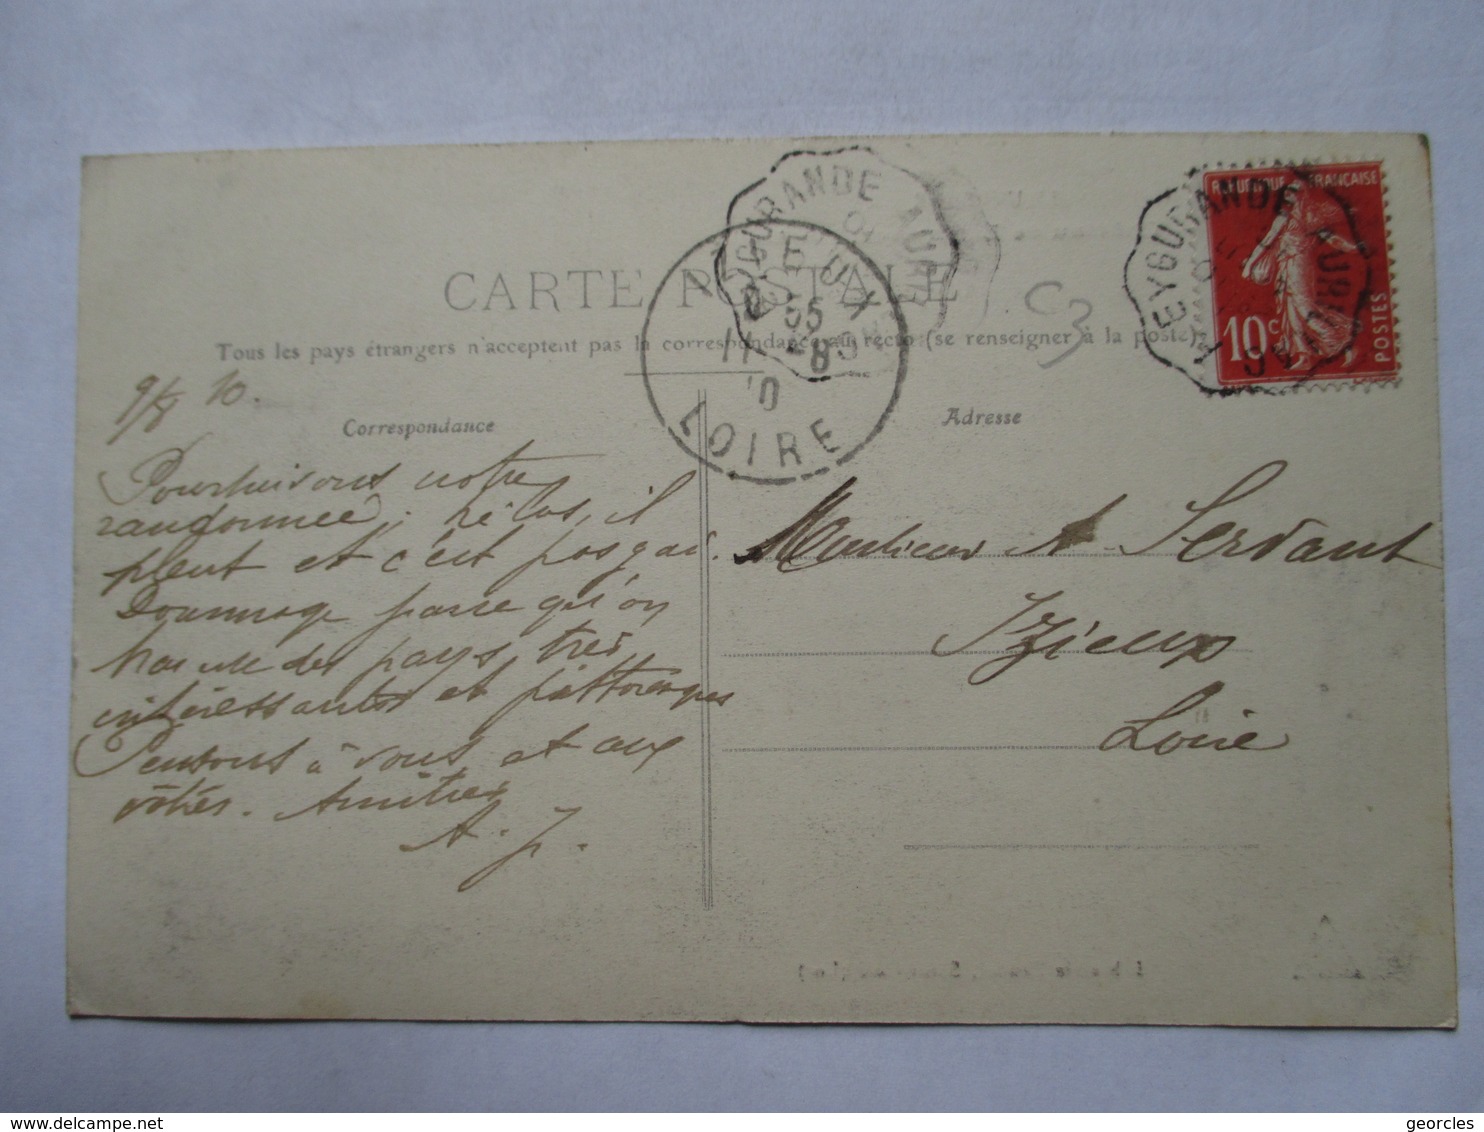 CARTE POSTALE
Tous les pays étrangers n'acceptent pas la correspondance au recto (se renseigner à la poste)
Correspondance
Adresse
EYGURANDE
AURILLAC
RÉPUBLIQUE FRANÇAISE
10 c
POSTES
EYGURANDE AURI
IZIEUX
55
11 -8
10
LOIRE
C3
9/8 10.
Poursuivons notre
randonnée, hélas, il
pleut et c'est pas gai.
Dommage parce qu'on
des pays très
intéressants et pittoresques
Pensons à vous et aux
vôtres. Amitiés
A. J.
Monsieur A. Servant
Izieux
Loire
delcampe.net
georcles